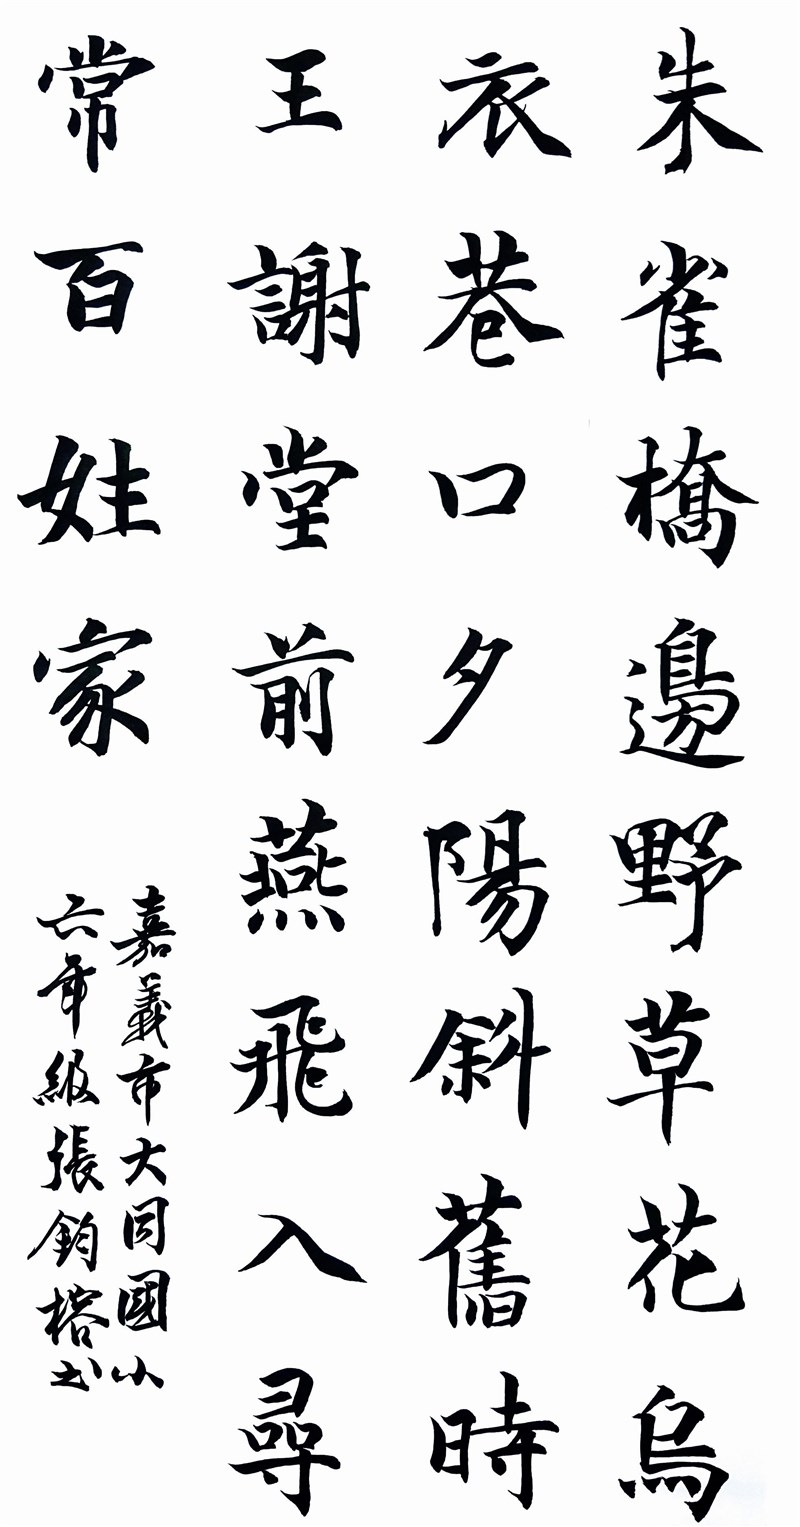 朱雀橋邊野草花烏
衣巷口夕陽斜舊時
王謝堂前燕飛入尋
常百姓家
嘉義市大同國小
六年級張鈞榕書